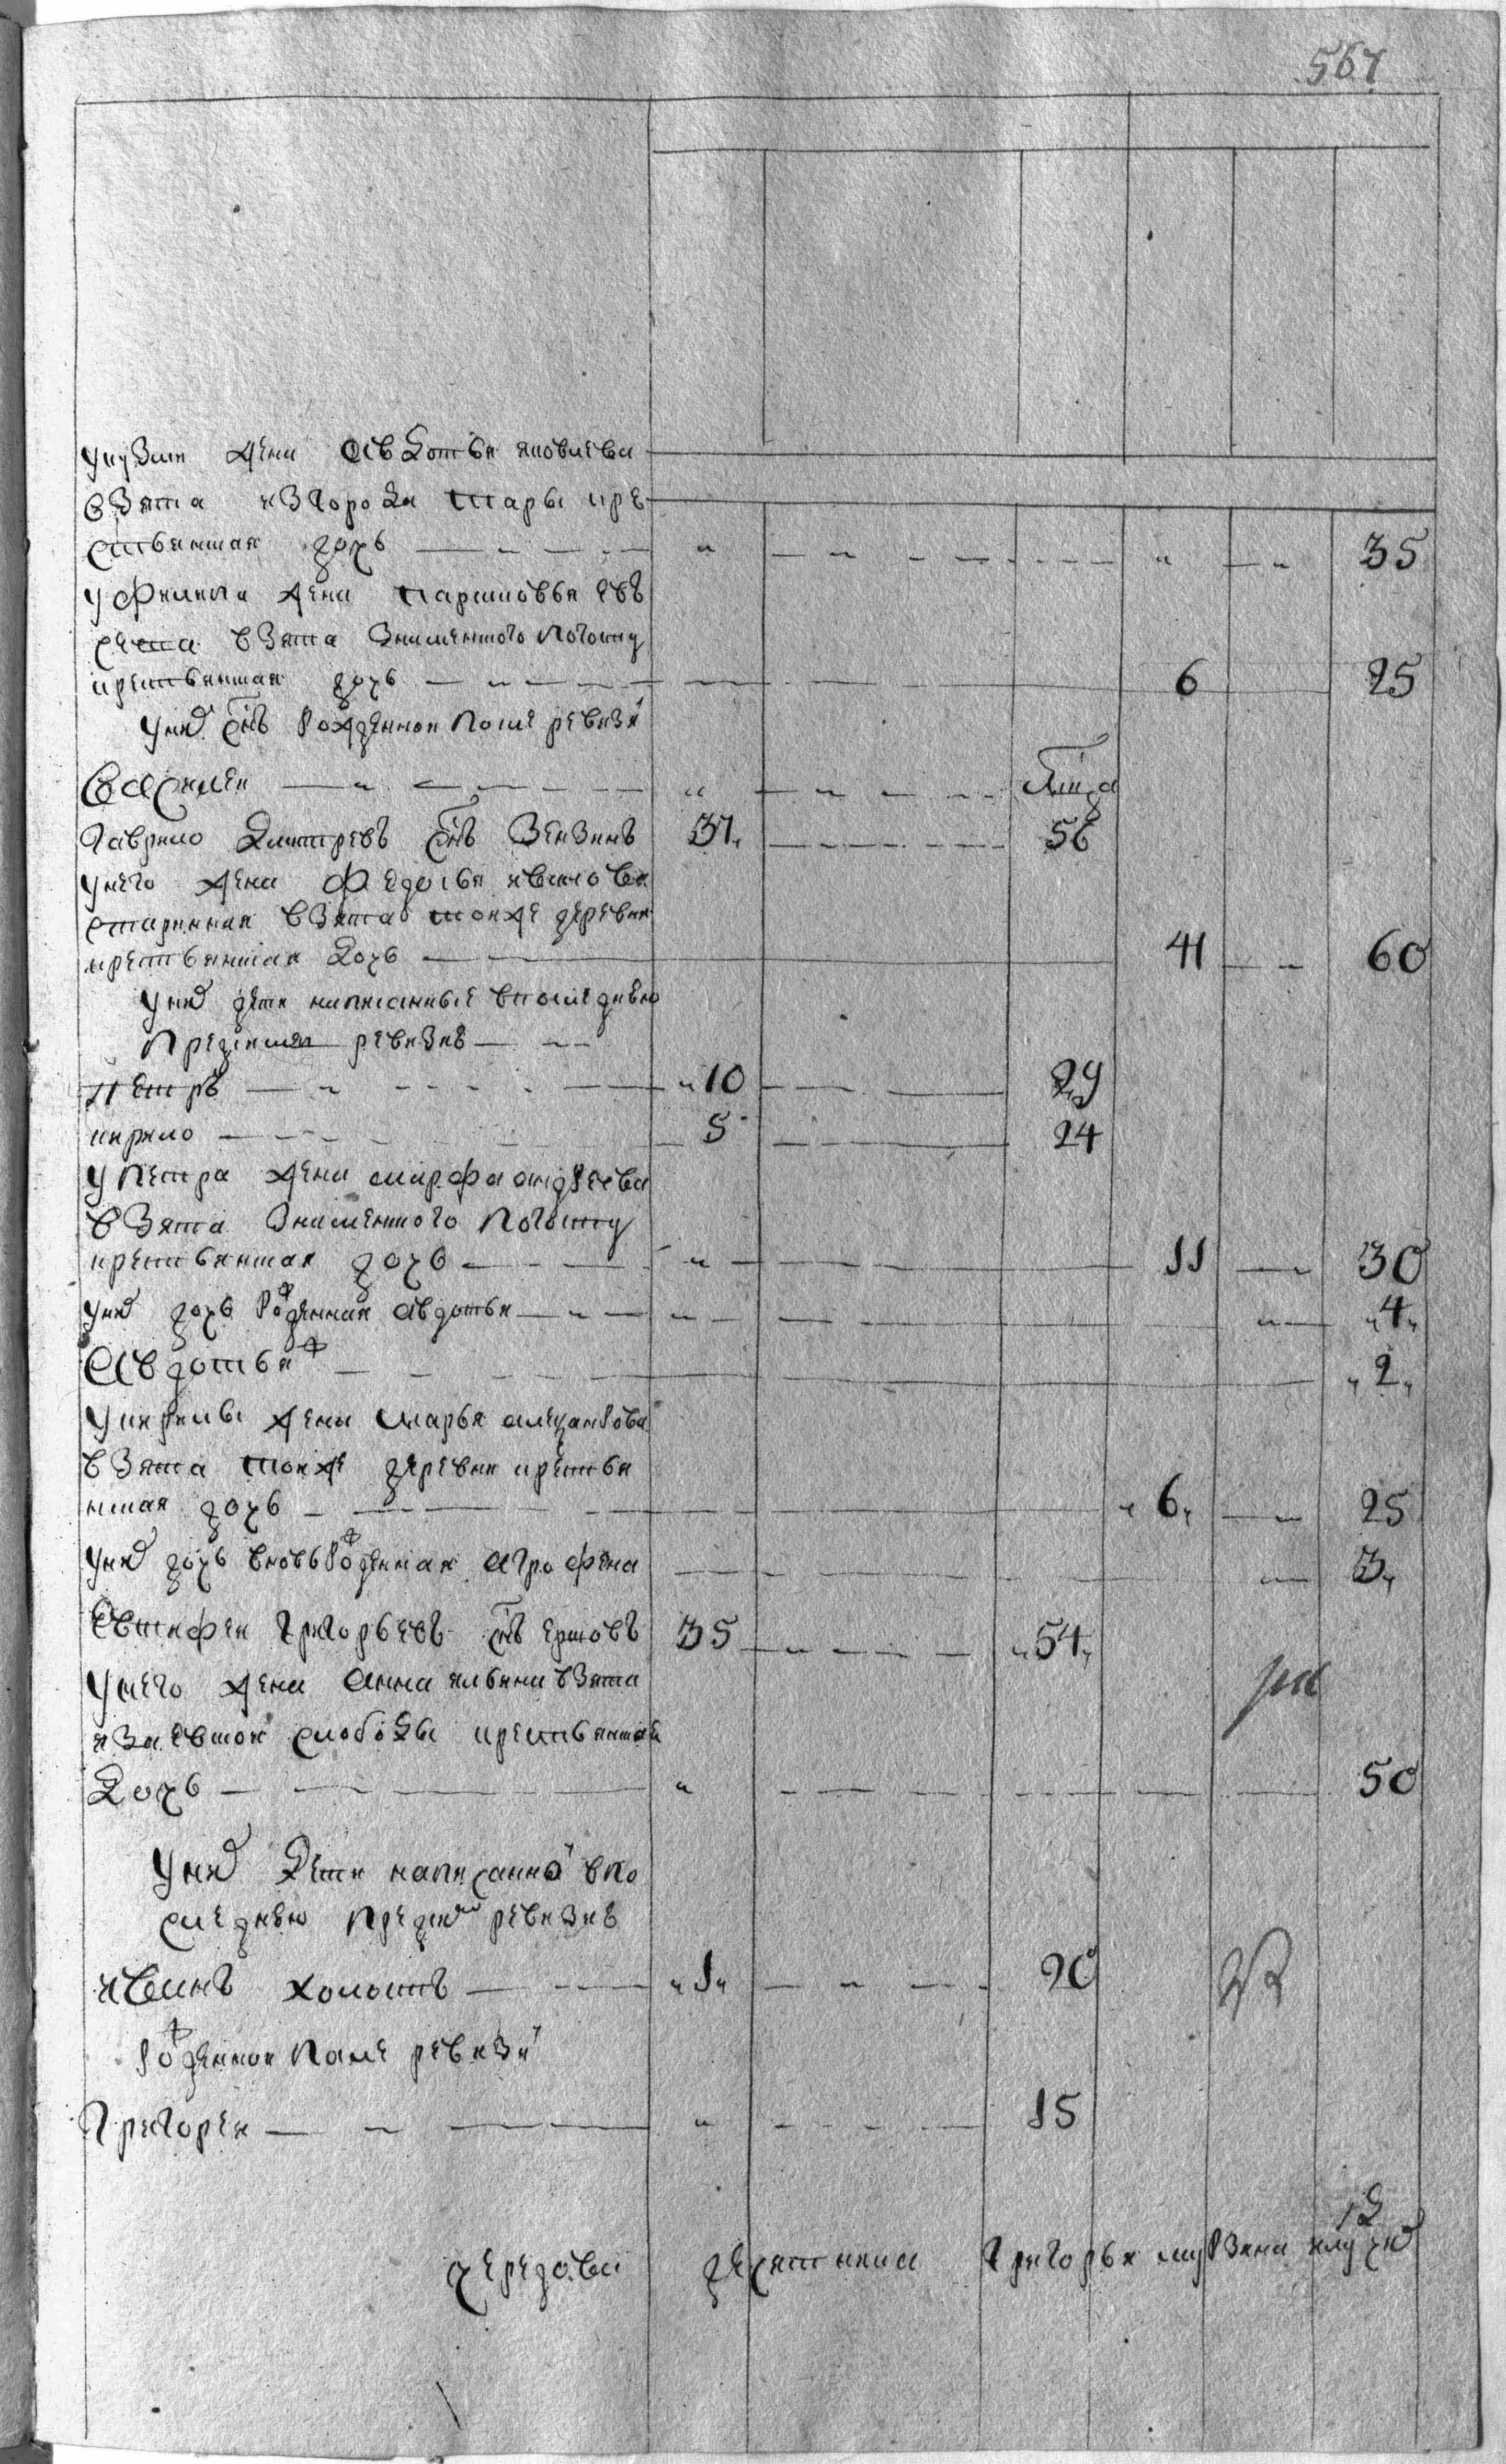 567
укузме жена авдотья яковлева
взята изгорода тары кре
стьянская дочь — " — — " — — " — " 35
уфилипа жена парасковья
взята знаменского погосту
крестьянская дочь — " — — 6 — 25
унеє снъ рожденной после ревизї
василей — " — — " — — "
гаврило дмитревъ снъ зензинъ 37 — — 56
унего жена федосья иванова
старинная взята тойже деревни
крестьянская дочь — 41 — 60
унеє дети написанные впоследнею
пред ревизию — —
петръ — " — — " 10 — — 29
кирило — — — 5 — — 24
упетра жена марфа андреева
взята знаменского погосту
крестьянская дочь — — " — — 11 — 30
унеє дочь рожденная авдотья — " — " — — " — "4"
авдотья — — — — "2"
укирилы жена марья
взята тойже деревни крестья
нская дочь — — — "6" — 25
унеє дочь вновь рожденная аграфена — — " — 3"
евстифей григорьевъ снъ ершовъ 35 — " — "54"
унего жена анна ильина взята
слободы крестьянская
дочь — — " — — — 50
унеє дети написанны впо
следнею пред ревизию
иванъ холостъ — — "1" — " — 20
рожденной после ревизї
григорей — " — " — — 15
григорья